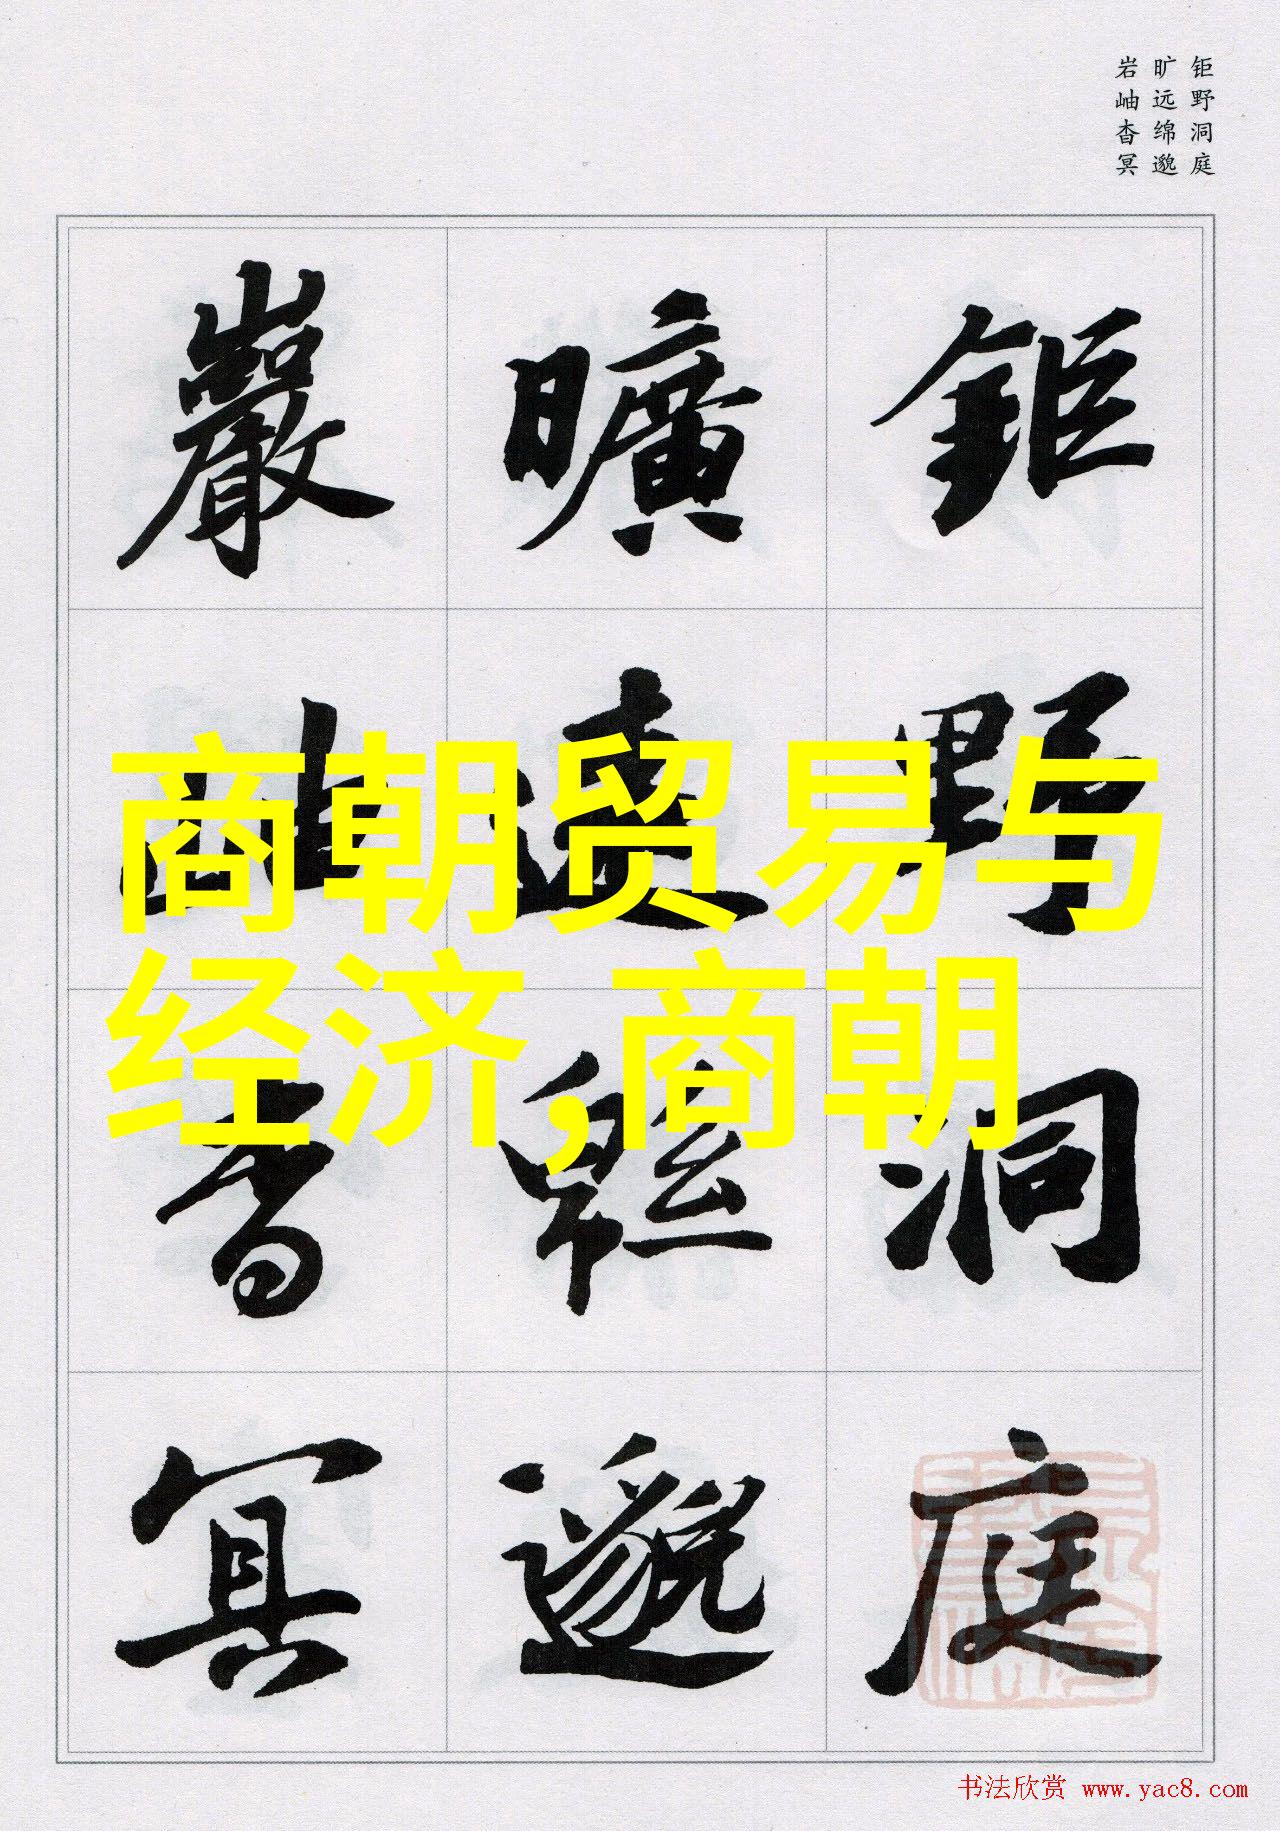 钜野洞庭
旷远绵邈
岩岫杳冥
鉅野洞庭
曠遠緜邈
巖岫杳冥
商朝贸易与
经济,商朝
书法欣赏 www.yac8.com